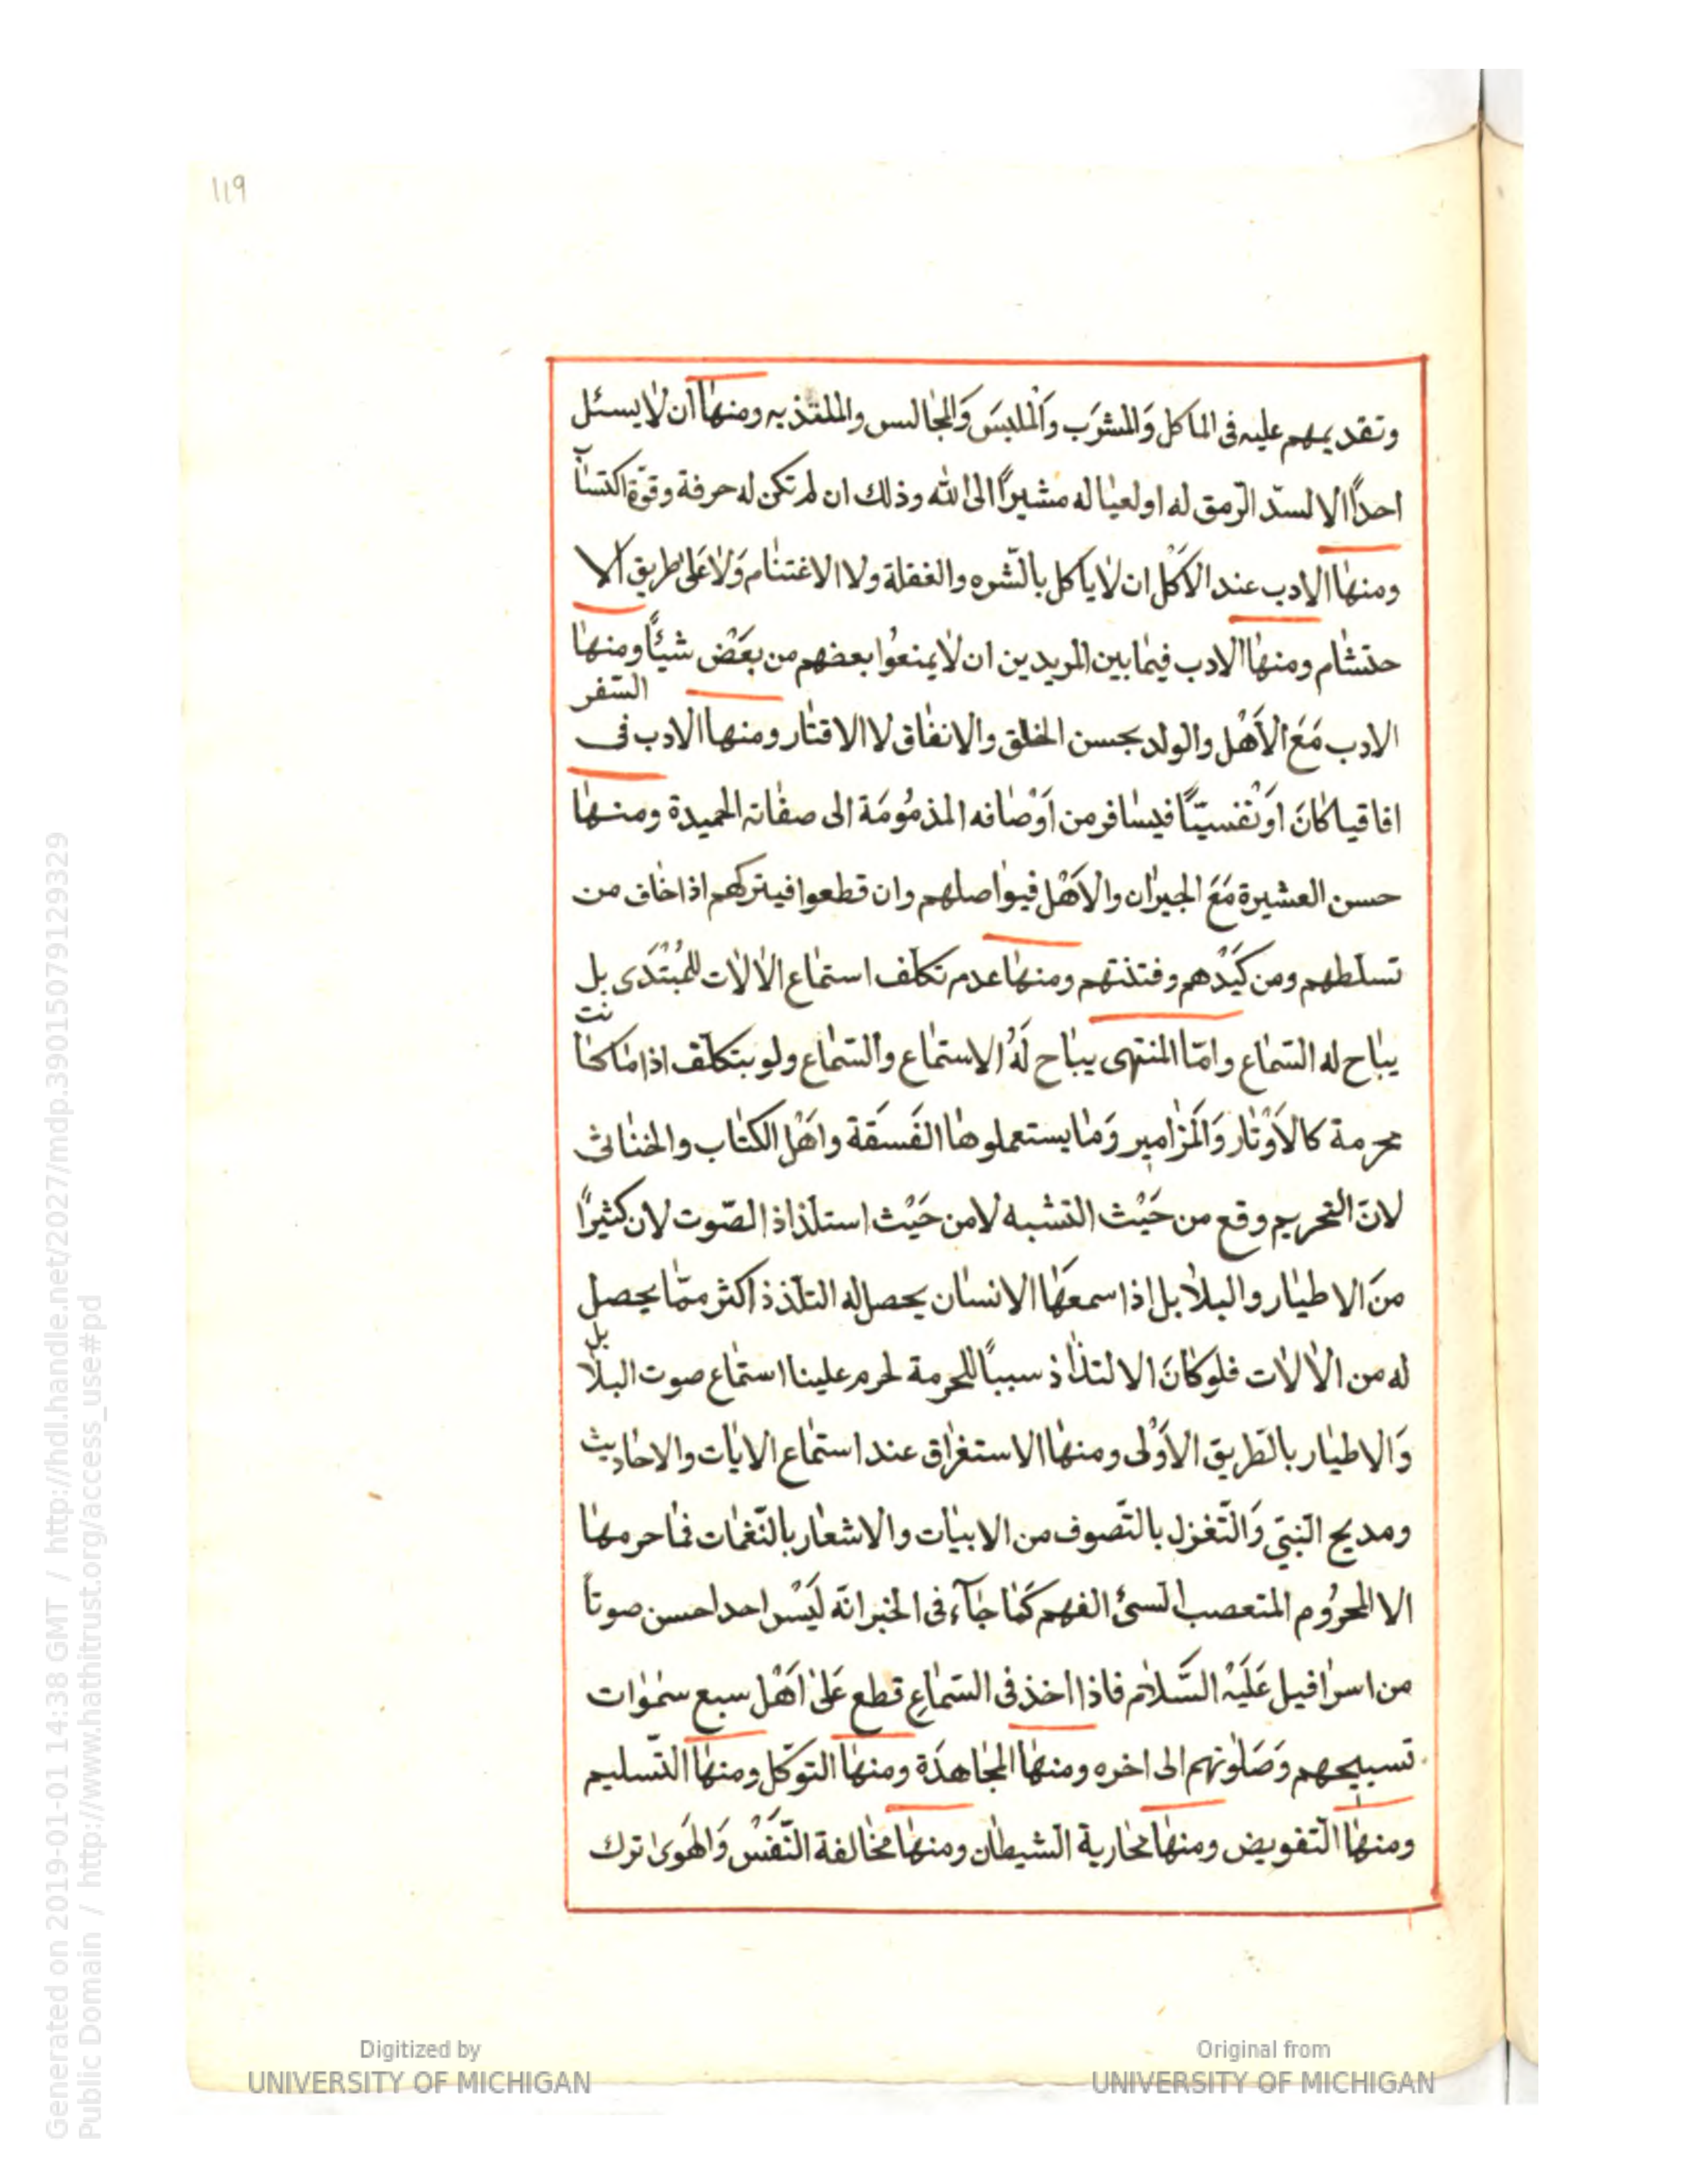 119
وتقديمهم عليه فى الماكل وَالمشرَب وَالْملبسَ وَالمجٰالس والملتذيه ومنهٰا ان لٰايسئل
احداً الا لسدّ الرّمق له او لعيٰاله مشيراً الى الله وذلك ان لم تكن له حرفة وقوّة اكتسٰاب
ومنهٰا الادب عند الاَكْل ان لٰاياكل بالشّره والغفلة ولا الاغتنٰام وَلٰاعَلىٰ طريق الا
حتشٰام ومنهٰا الادب فيمٰا بين المريدين ان لٰايمنعُوا بعضهم من بعَضْ شيئاً ومنهٰا
الادب مَعَ الاَهْل والولد بحسن الخلق والانفٰاق لا الاقتٰار ومنها الادب فى السّفر
افاقيا كٰانَ اوَنْفسيّاً فيسٰافر من اَوْصٰافه المذمُومَة الى صفٰاته الحميدة ومنهٰا
حسن العشيرة مَعَ الجيرٰان والاَهْل فيوٰاصلهم وان قطعوا فيتركهم اذا خٰاف من
تسلطهم ومن كَيَدْهم وفتنتهم ومنهٰا عدم تكلّف استمٰاع الاٰلاٰت للمُبْتَدَى بل
يبٰاح له السّمٰاع وامّا المنتهى يبٰاح لَهُ الاستمٰاع والسّمٰاع ولو بتكلّف اذا مٰا كٰانت
محرمة كالاَوْتٰار وَالمَزٰامير وَمٰا يستعملوهٰا الفَسَقَة واَهْل الكتٰاب والخنٰاثى
لانَ التحريم وقع من حَيْث التشبه لامن حَيْث استلذاذ الصّوت لان كثيراً
منَ الاطيٰار والبلاٰبل اذا سمعَهٰا الانسٰان يحصل له التلّذذ اكثر ممّٰا يحصل
له من الاٰلاٰت فلو كٰانَ الالتذٰاذ سبباً للحرمة لحرم علينا استمٰاع صوت البلاٰبل
وَالاطيٰار بالطّريق الاَوْلى ومنهٰا الاستغرٰاق عند استمٰاع الايٰات والاحٰاديث
ومديح النّبىّ وَالتّغزل بالتّصوف من الابيٰات والاشعٰار بالنّغمٰات فمٰا حرمهٰا
الا المحرُوم المتعصب السىّئ الفهم كَمٰا جٰآء فى الخبر انّه لَيَسْ احد احسن صوتاً
من اسرٰافيل عَلَيْه السَّلاٰم فاذا اخذ فى السّمٰاعِ قطع عَلىٰ اَهْل سبع سمٰوٰات
تسبيحهم وَصَلوٰتهم الى اخره ومنهٰا المجٰاهدَة ومنهٰا التوكّل ومنهٰا التّسليم
ومنهٰا التّفويض ومنهٰا محٰاربة الشّيطٰان ومنهٰا مخٰالفة النّفَسْ وَالهَوىٰ ترك
Digitized by
UNIVERSITY OF MICHIGAN
Original from
UNIVERSITY OF MICHIGAN
Generated on 2019-01-01 14:38 GMT / http://hdl.handle.net/2027/mdp.39015079129329
Public Domain / http://www.hathitrust.org/access_use#pd